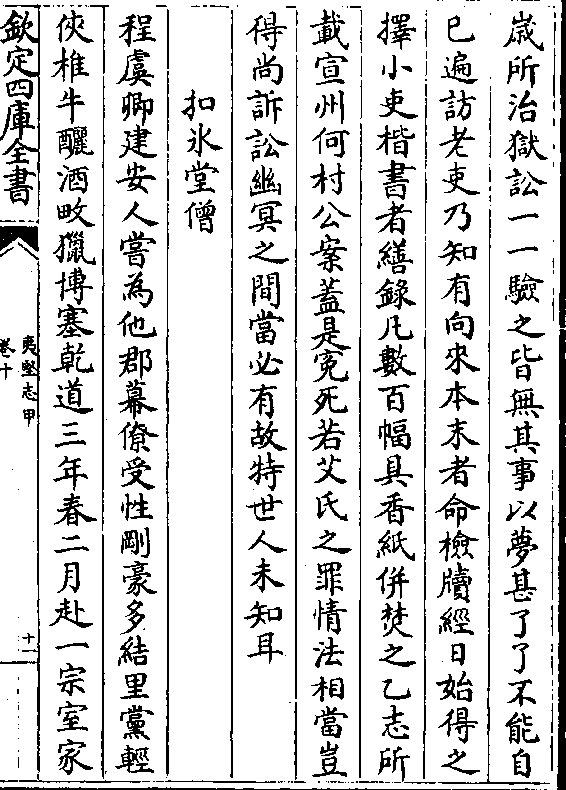 歳所治獄訟一一驗之皆無其事以夢甚了了不能自
已遍訪老吏乃知有向來本末者命檢牘經日始得之
擇小吏楷書者繕錄凡數百幅具香紙併焚之乙志所
載宣州何村公案蓋是寃死若艾氏之罪情法相當豈
得尚訴訟幽冥之間當必有故特世人未知耳
扣氷堂僧
程虞卿建安人嘗為他郡幕僚受性剛豪多結里黨輕
俠椎牛釃酒畋獵博塞乾道三年春二月赴一宗室家
欽定四庫全書
夷堅志甲
卷十
十一